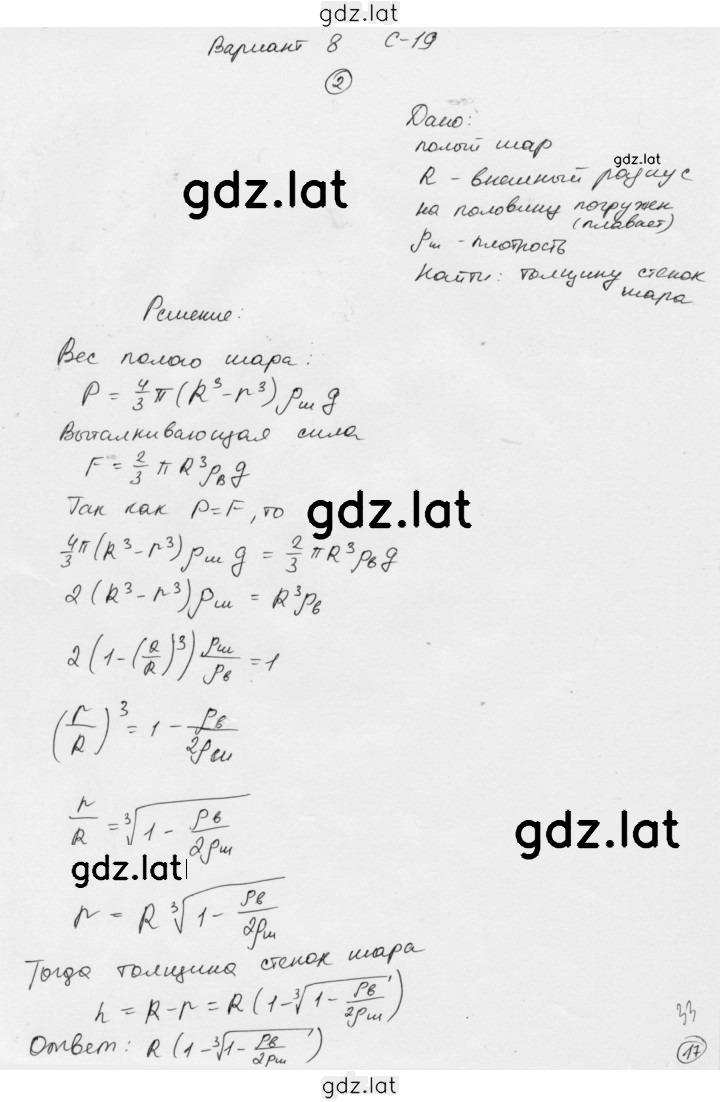 gdz.lat
Вариант 8 С-19
2
Дано:
полый шар
gdz.lat
R - внешний радиус
gdz.lat
на половину погружен
(плавает)
ρш - плотность
Найти: толщину стенок
шара
Решение:
Вес полого шара:
P = 4/3 π (R³ - r³) ρш g
Выталкивающая сила
F = 2/3 π R³ ρв g
Так как P = F, то
gdz.lat
4/3 π (R³ - r³) ρш g = 2/3 π R³ ρв g
2 (R³ - r³) ρш = R³ ρв
2 (1 - (r/R)³) ρш/ρв = 1
(r/R)³ = 1 - ρв/2ρш
r/R = ³√(1 - ρв/2ρш)
gdz.lat
gdz.lat
r = R ³√(1 - ρв/2ρш)
Тогда толщина стенок шара
h = R - r = R (1 - ³√(1 - ρв/2ρш))
33
Ответ: R (1 - ³√(1 - ρв/2ρш))
17
gdz.lat